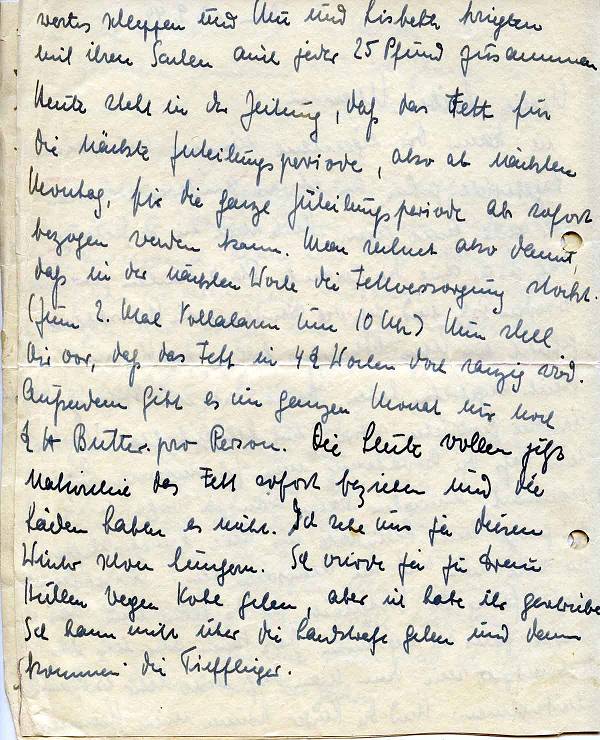 schleppen und und Lisbeth kriegten
mit ihren Sachen auch jeder 25 Pfund zusammen
Heute steht in der Zeitung, daß das Fett für
die nächste Zuteilungsperiode, also ab nächsten
Montag, für die ganze Zuteilungsperiode ab sofort
bezogen werden kann. Man rechnet also damit,
daß in der nächsten Woche die Fettversorgung stockt.
(Zum 2. Mal Vollalarm um 10 Uhr) Nun stell
Dir vor, daß das Fett in Wochen doch ranzig wird.
Außerdem gibt es im ganzen Monat nur noch
Butter pro Person. Die Leute wollen jetzt
natürlich das Fett sofort beziehen und die
Läden haben es nicht. Ich sehe uns ja diesen
Winter schon hungern. Ich würde ja zu
wegen gehen, aber ich habe ihr geschrieben
Ich kann nicht über die Landstraße gehen und dann
kommen die Tiefflieger.